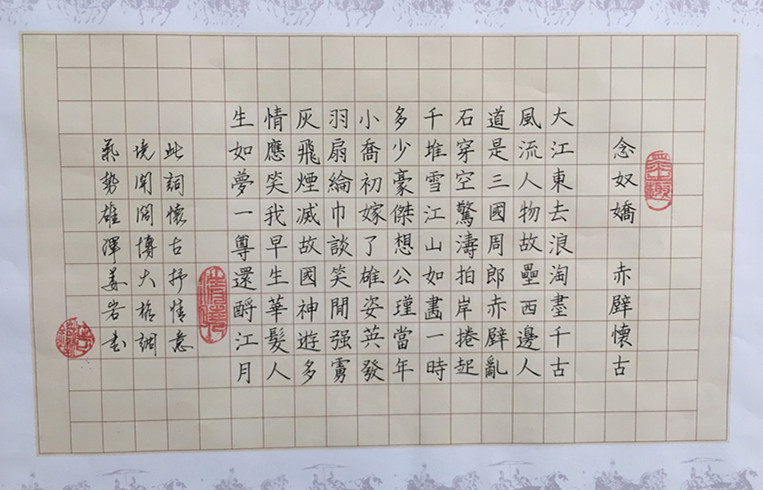 念奴嬌 赤壁懷古
大江東去浪淘盡千古
風流人物故壘西邊人
道是三國周郎赤壁亂
石穿空驚濤拍岸捲起
千堆雪江山如畫一時
多少豪傑想公瑾當年
小喬初嫁了雄姿英發
羽扇綸巾談笑間强虜
灰飛煙滅故國神遊多
情應笑我早生華髮人
生如夢一尊還酹江月
此詞懷古抒情意
境開闊博大格調
氣勢雄渾姜岩书